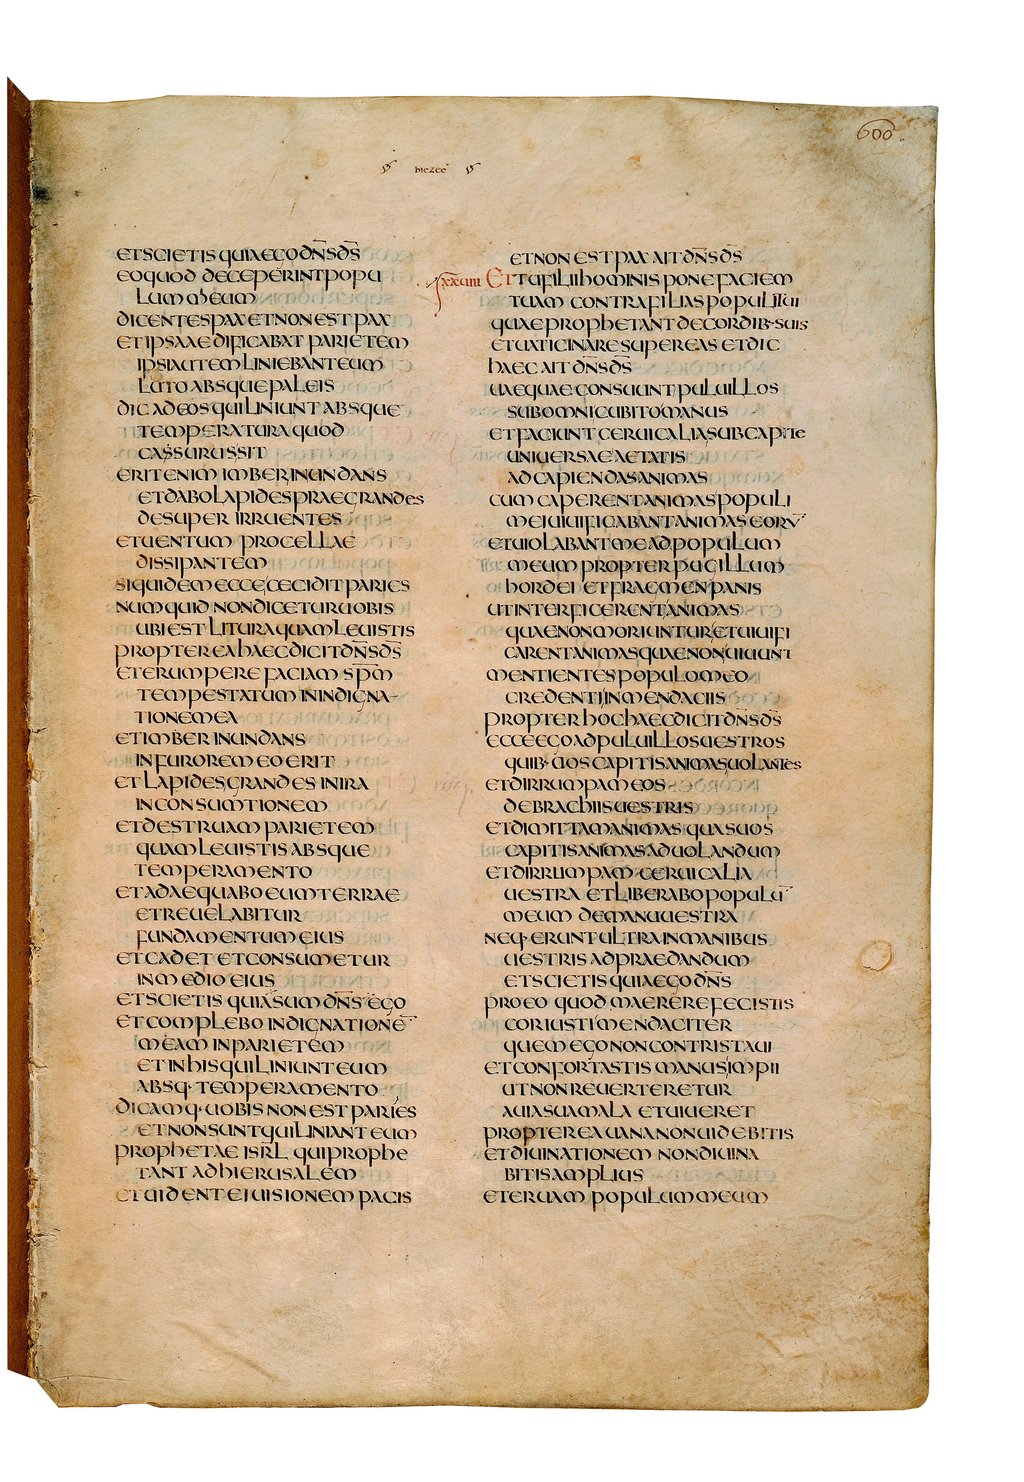 600
hiezec
ET SCIETIS QUIA EGO DN̅S D̅S
EO QUOD DECEPERINT POPU
LUM MEUM
DICENTES PAX ET NON EST PAX
ET IPSA AEDIFICABAT PARIETEM
IPSI AUTEM LINIEBANT EUM
LUTO ABSQUE PALEIS
DIC AD EOS QUI LINIUNT ABSQUE
TEMPERATURA QUOD
CASSURUS SIT
ERIT ENIM IMBER INUNDANS
ET DABO LAPIDES PRAEGRANDES
DESUPER IRRUENTES
ET UENTUM PROCELLAE
DISSIPANTEM
SIQUIDEM ECCE CECIDIT PARIES
NUMQUID NON DICETUR UOBIS
UBI EST LITURA QUAM LEUISTIS
PROPTEREA HAEC DICIT DN̅S D̅S
ET ERUMPERE FACIAM SP̅M
TEMPESTATUM IN INDIGNA
TIONE MEA
ET IMBER INUNDANS
IN FURORE MEO ERIT
ET LAPIDES GRANDES IN IRA
IN CONSUMTIONEM
ET DESTRUAM PARIETEM
QUAM LEUISTIS ABSQUE
TEMPERAMENTO
ET ADAEQUABO EUM TERRAE
ET REUELABITUR
FUNDAMENTUM EIUS
ET CADET ET CONSUMETUR
IN MEDIO EIUS
ET SCIETIS QUIA SUM DN̅S EGO
ET COMPLEBO INDIGNATIONE̅
MEAM IN PARIETEM
ET IN HIS QUI LINIUNT EUM
ABSQ· TEMPERAMENTO
DICAMQ· UOBIS NON EST PARIES
ET NON SUNT QUI LINIANT EUM
PROPHETAE ISRL QUI PROPHE
TANT AD HIERUSALEM
ET UIDENT EI UISIONEM PACIS
ET NON EST PAX AIT DN̅S D̅S
xxuiii ET TU FILI HOMINIS PONE FACIEM
TUAM CONTRA FILIAS POPULI TUI
QUAE PROPHETANT DE CORDIB· SUIS
ET UATICINARE SUPER EAS ET DIC
HAEC AIT DN̅S D̅S
UAE QUAE CONSUUNT PULUILLOS
SUB OMNI CUBITO MANUS
ET FACIUNT CERUICALIA SUB CAPITE
UNIUERSAE AETATIS
AD CAPIENDAS ANIMAS
CUM CAPERENT ANIMAS POPULI
MEI UIUIFICABANT ANIMAS EORU̅
ET UIOLABANT ME AD POPULUM
MEUM PROPTER PUGILLUM
HORDEI ET FRAGMEN PANIS
UT INTERFICERENT ANIMAS
QUAE NON MORIUNTUR ET UIUIFI
CARENT ANIMAS QUAE NON UIUUNT
MENTIENTES POPULO MEO
CREDENTI IN MENDACIIS
PROPTER HOC HAEC DICIT DN̅S D̅S
ECCE EGO AD PULUILLOS UESTROS
QUIB· UOS CAPITIS ANIMAS UOLANTES
ET DIRRUMPAM EOS
DE BRACHIIS UESTRIS
ET DIMITTAM ANIMAS QUAS UOS
CAPITIS ANIMAS AD UOLANDUM
ET DIRRUMPAM CERUICALIA
UESTRA ET LIBERABO POPULU̅
MEUM DE MANU UESTRA
NEQ· ERUNT ULTRA IN MANIBUS
UESTRIS AD PRAEDANDUM
ET SCIETIS QUIA EGO DN̅S
PRO EO QUOD MAERERE FECISTIS
COR IUSTI MENDACITER
QUEM EGO NON CONTRISTAUI
ET CONFORTASTIS MANUS IMPII
UT NON REUERTERETUR
A UIA SUA MALA ET UIUERET
PROPTEREA UANA NON UIDEBITIS
ET DIUINATIONEM NON DIUINA
BITIS AMPLIUS
ET ERUAM POPULUM MEUM